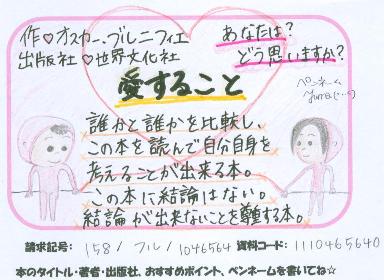 作♡オスカー・ブルニフィエ
出版社♡世界文化社
あなたは?
どう思いますか?
愛すること
ペンネーム
誰かと誰かを比較し、
この本を読んで自分自身を
考えることが出来る本。
この本に結論はない。
結論が出来ないことを尊重する本。
請求記号: 158/フル/1046564 資料コード: 1110465640
本のタイトル・著者・出版社、おすすめポイント、ペンネームを書いてね☆